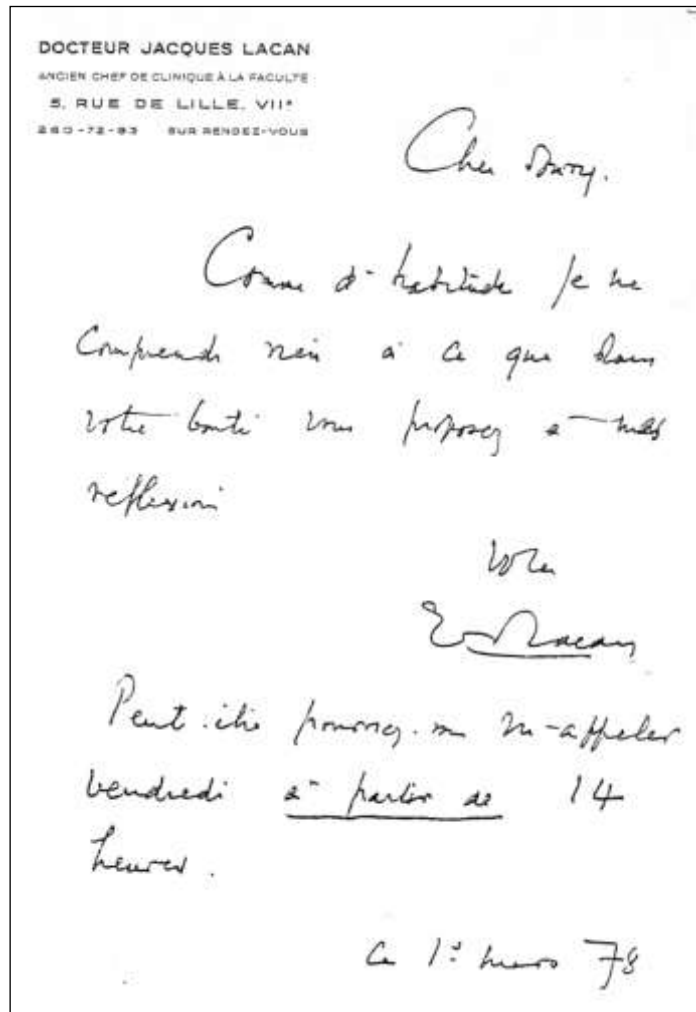 DOCTEUR JACQUES LACAN
ANCIEN CHEF DE CLINIQUE À LA FACULTÉ
5, RUE DE LILLE, VIIᵉ
260-72-93 SUR RENDEZ-VOUS
Cher Soury.
Comme d'habitude je ne
comprends rien à ce que dans
votre bonté vous proposez à mes
reflexion
Votre
Lacan
Peut-être pourrez-vous m'appeler
vendredi à partir de 14
heures.
Ce 1ᵉʳ mars 78